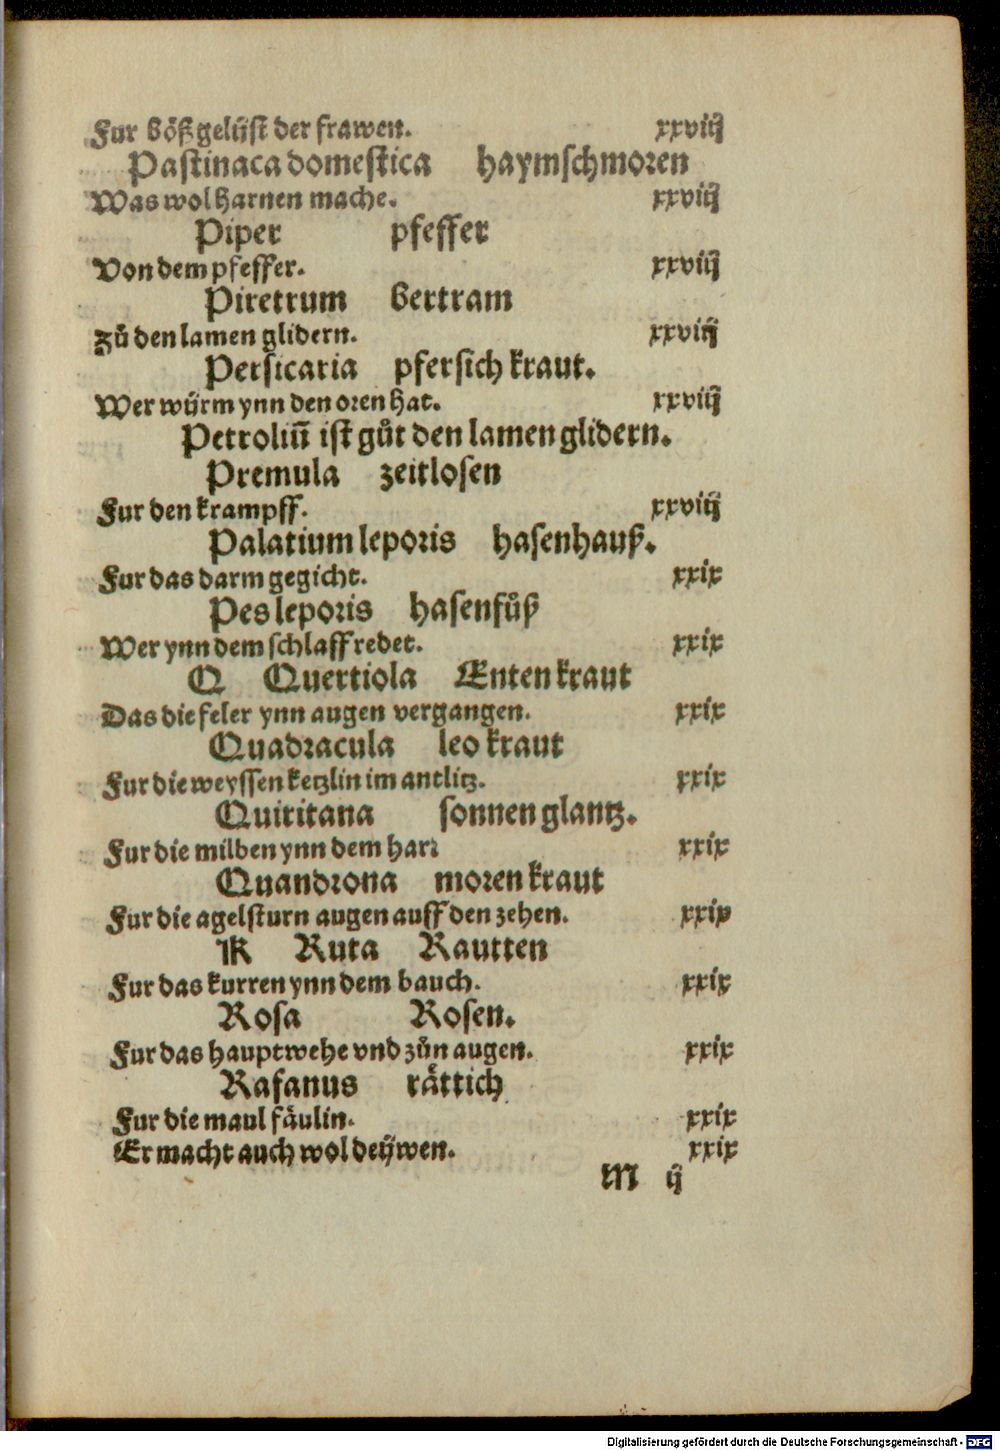 Fur bőß gelüst der frawen. xxviij
Pastinaca domestica haymschmoren
Was wol harnen mache. xxviij
Piper pfeffer
Von dem pfeffer. xxviij
Piretrum bertram
Zů den lamen glidern. xxviij
Persicaria pfersich kraut.
Wer würm ynn den oren hat. xxviij
Petroliū ist gůt den lamen glidern.
Premula zeitlosen
Fur den krampff. xxviij
Palatium leporis hasenhauß.
Fur das darm gegicht. xxix
Pes leporis hasenfůß
Wer ynn dem schlaff redet. xxix
Q Quertiola Enten kraut
Das die feler ynn augen vergangen. xxix
Quadracula leo kraut
Fur die weyssen ketzlin im antlitz. xxix
Quiritana sonnen glantz.
Fur die milben ynn dem har: xxix
Quandrona moren kraut
Fur die agelsturn augen auff den zehen. xxix
R Ruta Rautten
Fur das kurren ynn dem bauch. xxix
Rosa Rosen.
Fur das hauptwehe vnd zůn augen. xxix
Rafanus råttich
Fur die maul fäulin. xxix
Er macht auch wol deÿwen. xxix
M ij
Digitalisierung gefördert durch die Deutsche Forschungsgemeinschaft - DFG